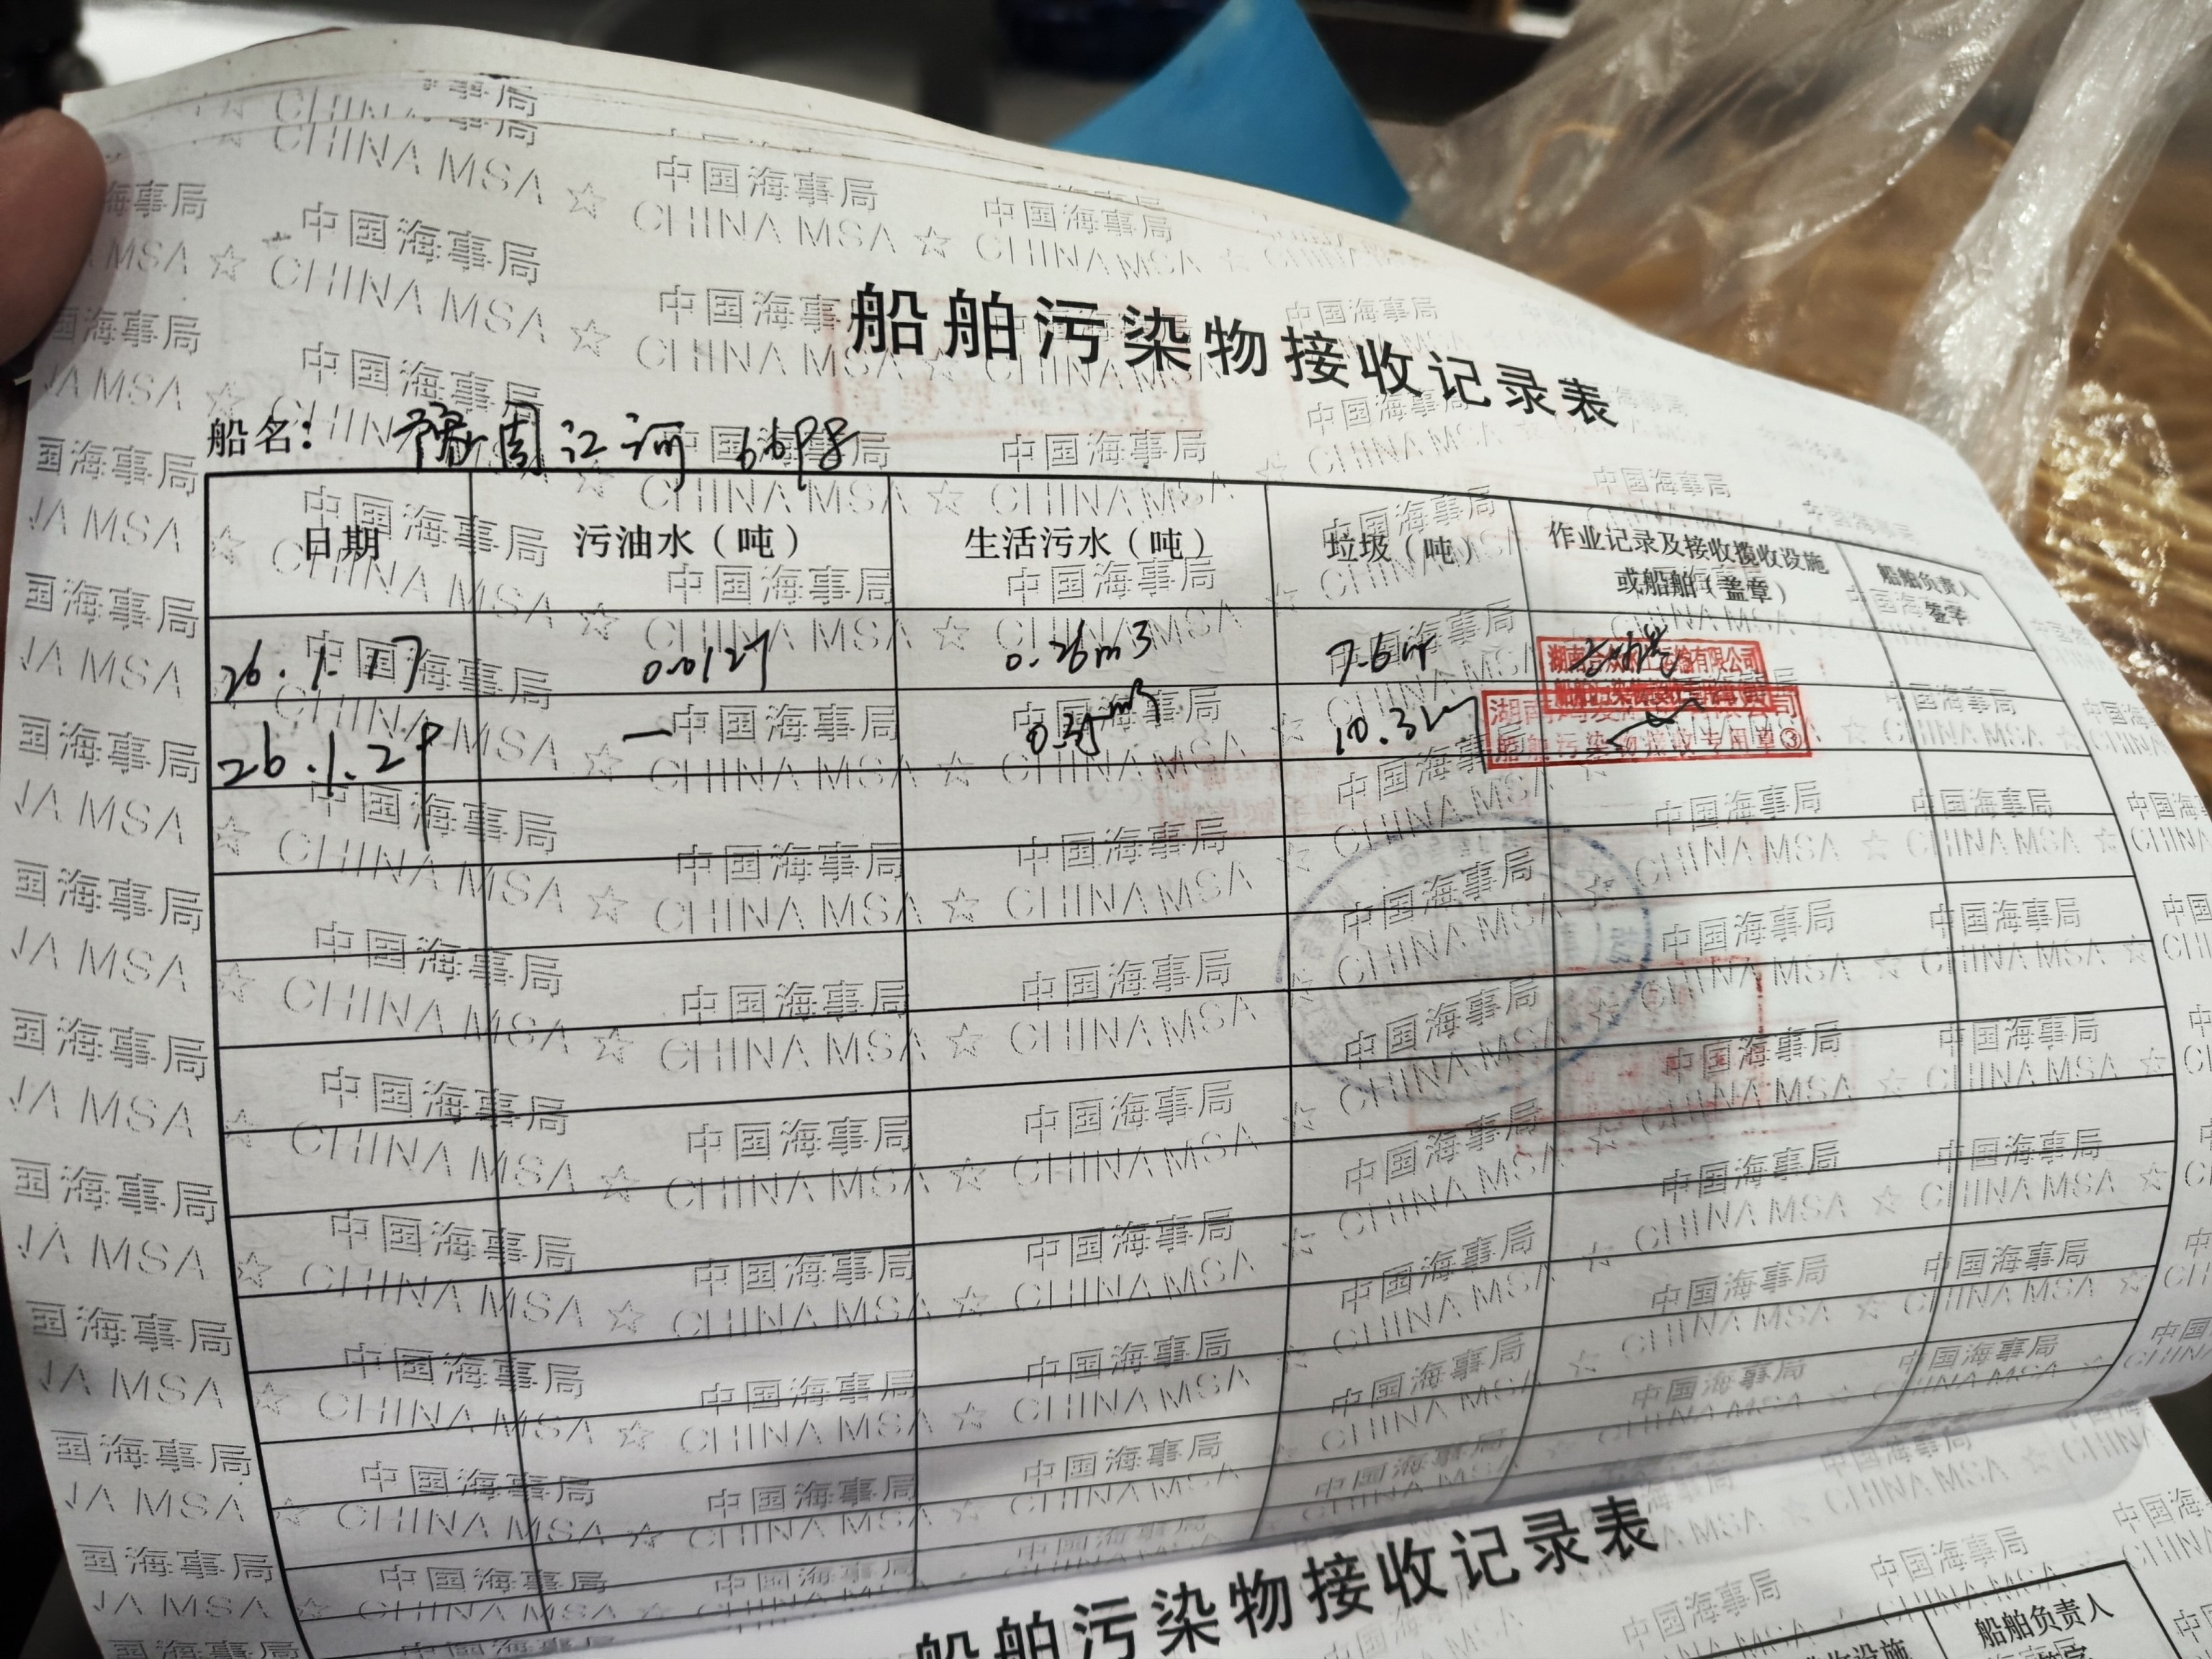 船舶污染物接收记录表
船名: 豫周江河 669号
日期 污油水（吨） 生活污水（吨） 垃圾（吨） 作业记录及接收揽收设施或船舶（盖章） 船舶负责人签字
26.1.17 0.012 0.26m3 7.6
湖南 水上运输有限公司
26.1.29 一 m3 10.3
湖南 公司
船舶污染物接收专用章③
船舶污染物接收记录表
收设施 船舶负责人
中国海事局
CHINA MSA